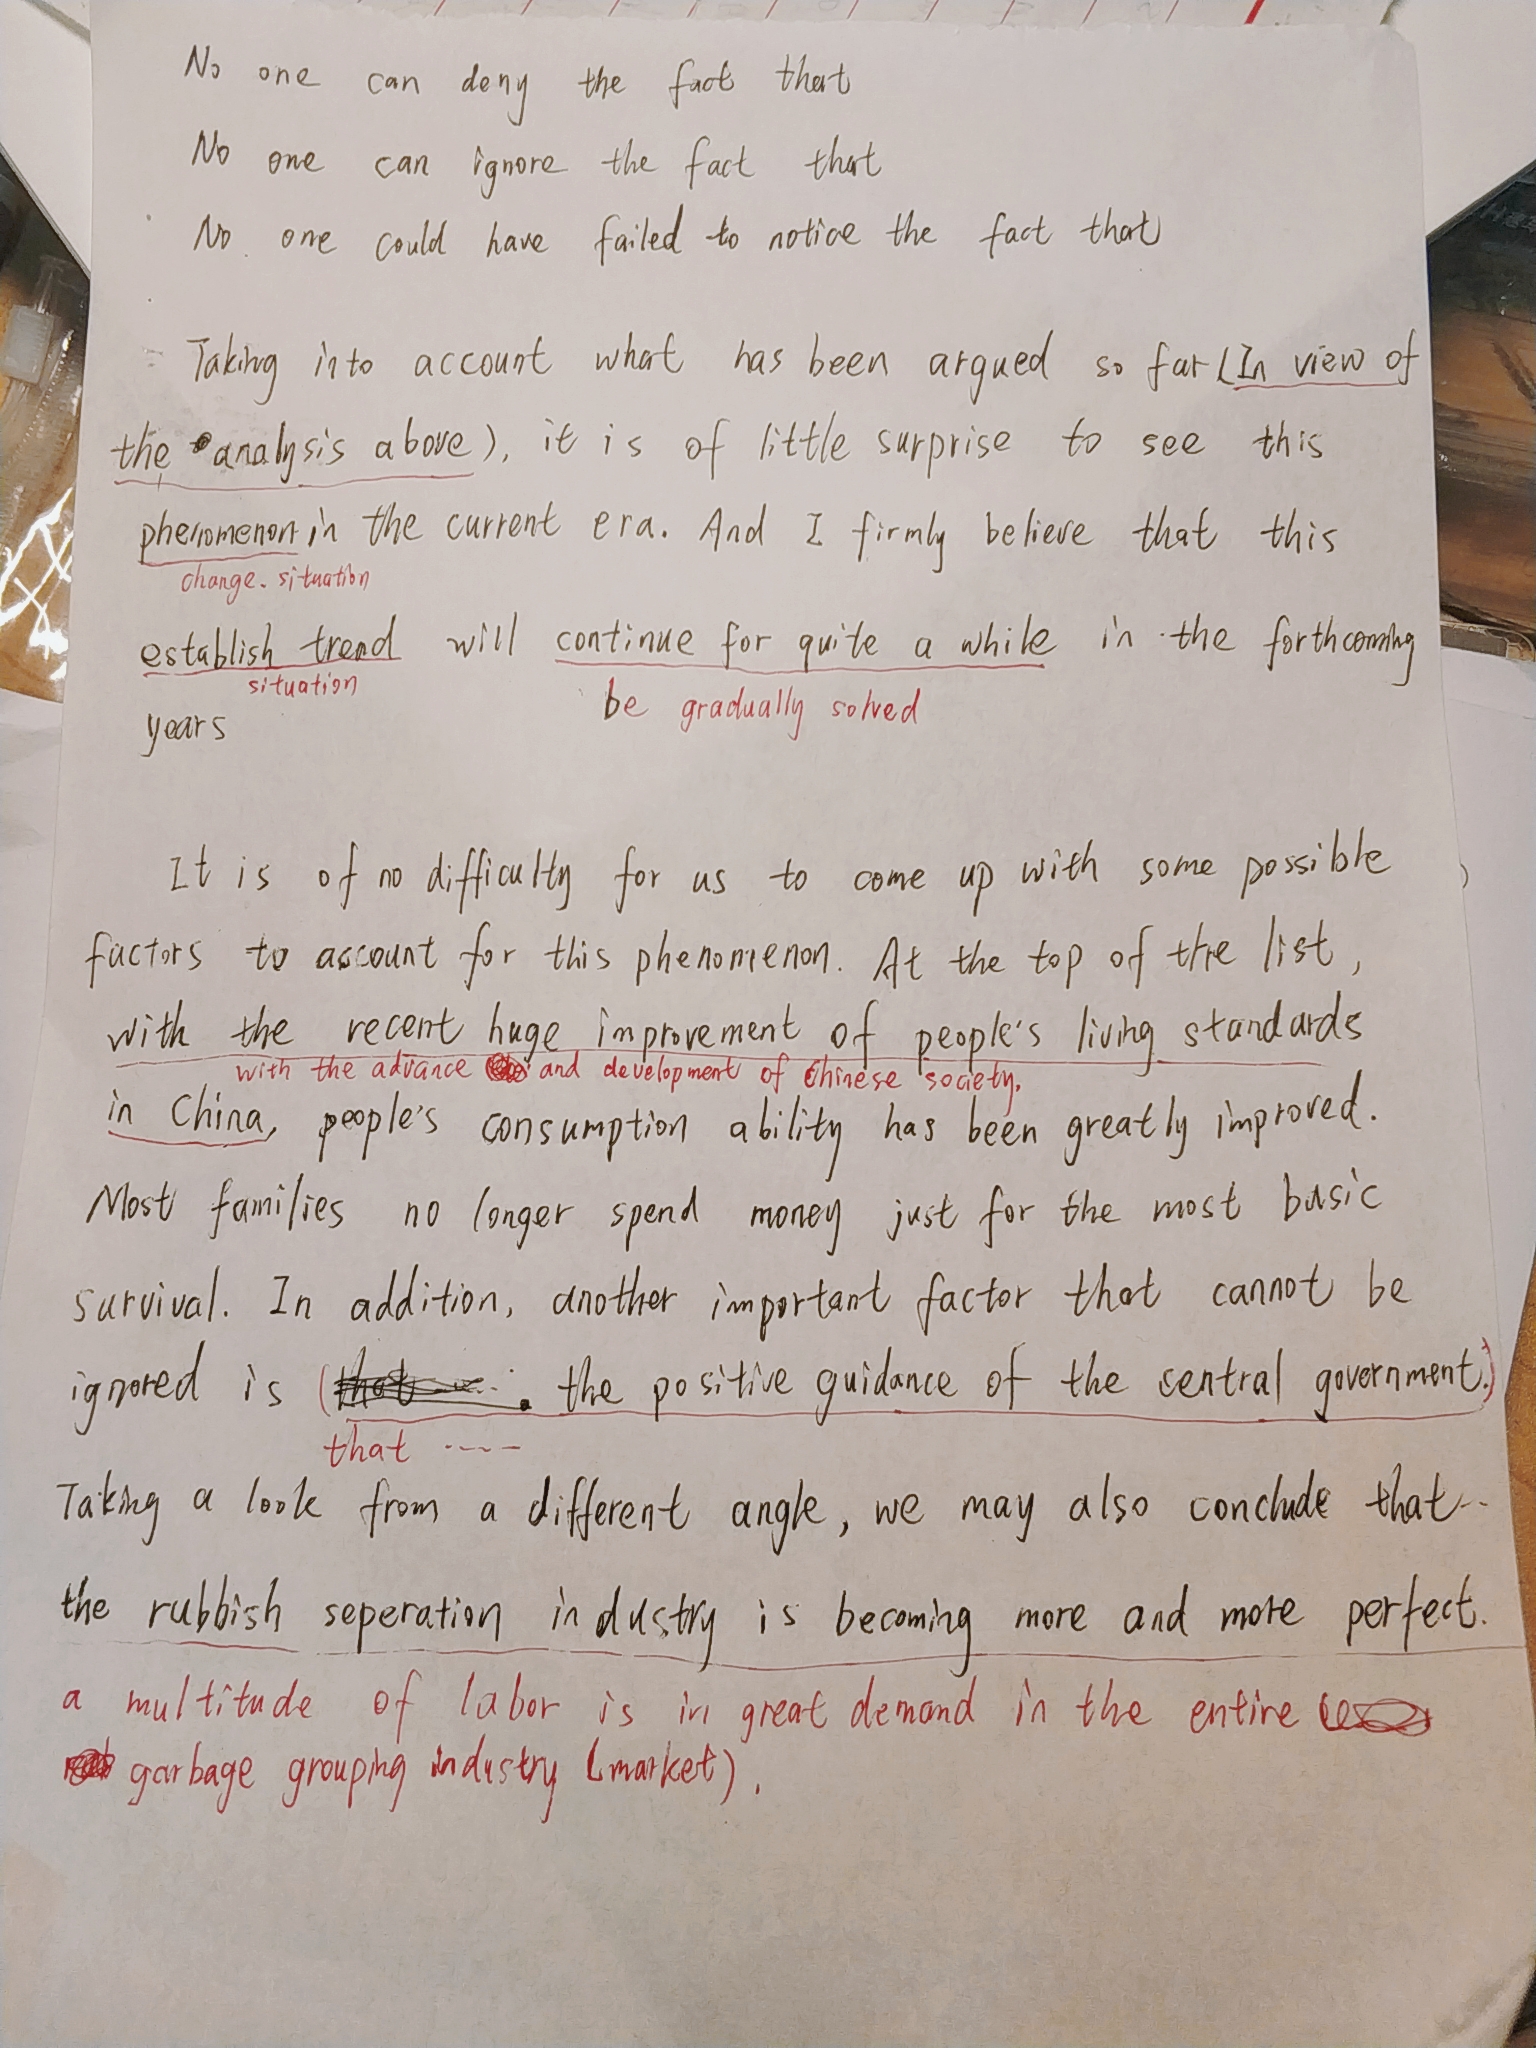 No one can deny the fact that
No one can ignore the fact that
No one could have failed to notice the fact that
Taking into account what has been argued so far (In view of
the analysis above), it is of little surprise to see this
phenomenon in the current era. And I firmly believe that this
change. situation
establish trend will continue for quite a while in the forthcoming
situation be gradually solved
years
It is of no difficulty for us to come up with some possible
factors to account for this phenomenon. At the top of the list,
with the recent huge improvement of people's living standards
with the advance and development of Chinese society.
in China, people's consumption ability has been greatly improved.
Most families no longer spend money just for the most basic
survival. In addition, another important factor that cannot be
ignored is (the positive guidance of the central government.)
that ----
Taking a look from a different angle, we may also conclude that--
the rubbish seperation industry is becoming more and more perfect.
a multitude of labor is in great demand in the entire
garbage grouping industry (market).